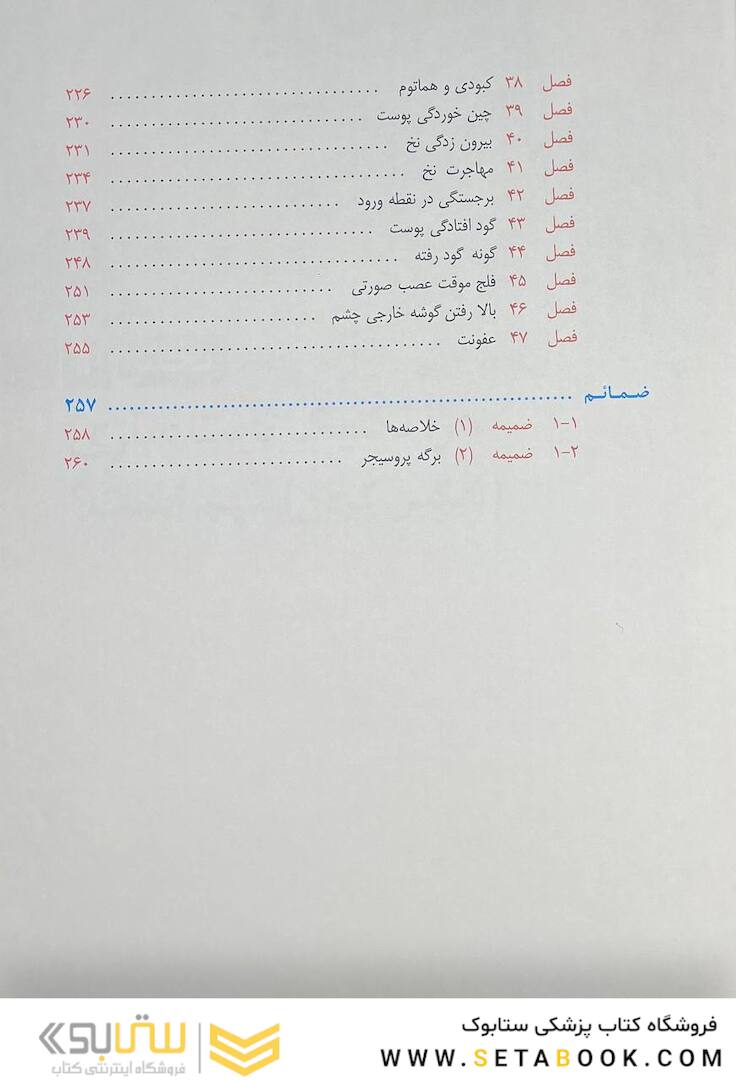 فصل ۳۸ کبودی و هماتوم ................................ ۲۲۶
فصل ۳۹ چین خوردگی پوست ................................ ۲۳۰
فصل ۴۰ بیرون زدگی نخ ................................ ۲۳۱
فصل ۴۱ مهاجرت نخ ................................ ۲۳۴
فصل ۴۲ برجستگی در نقطه ورود ................................ ۲۳۷
فصل ۴۳ گود افتادگی پوست ................................ ۲۳۹
فصل ۴۴ گونه گود رفته ................................ ۲۴۸
فصل ۴۵ فلج موقت عصب صورتی ................................ ۲۵۱
فصل ۴۶ بالا رفتن گوشه خارجی چشم ................................ ۲۵۳
فصل ۴۷ عفونت ................................ ۲۵۵
ضمائم ................................ ۲۵۷
۱-۱ ضمیمه (۱) خلاصه‌ها ................................ ۲۵۸
۱-۲ ضمیمه (۲) برگه پروسیجر ................................ ۲۶۰
فروشگاه کتاب پزشکی ستابوک
WWW.SETABOOK.COM
ستابوک
فروشگاه اینترنتی کتاب